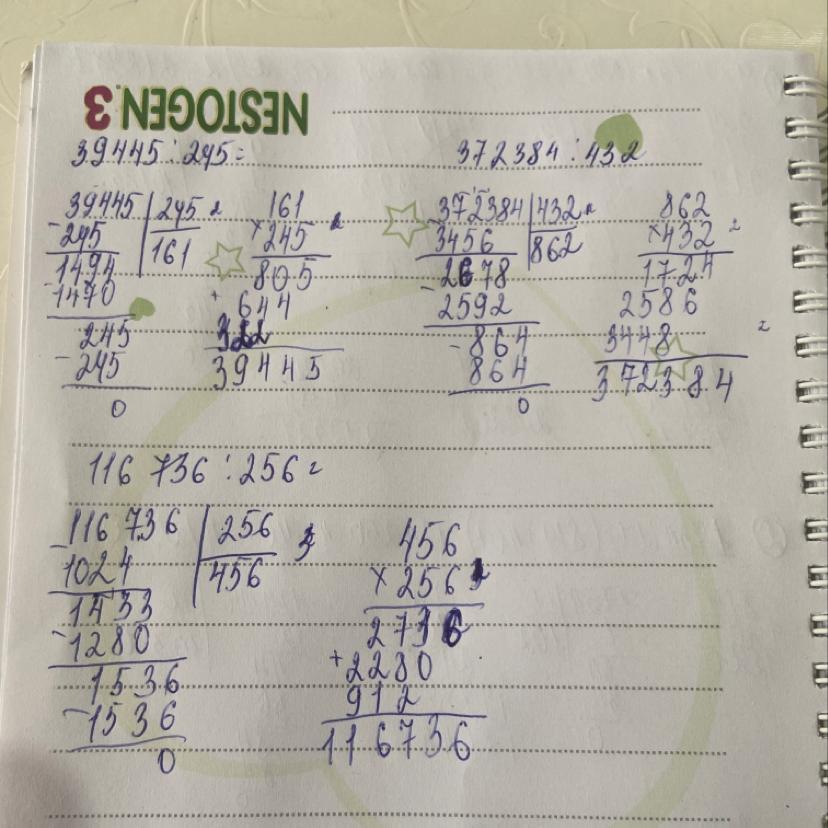 NESTOGEN 3
39445 : 245 =
372384 : 432
39445 245
- 245 161
1494
- 1470
245
- 245
0
161
× 245
805
+ 644
322
39445
- 372384 432
3456 862
2678
- 2592
- 864
864
0
862
× 432
1724
2586
3448
372384
116 736 : 256 =
- 116 736 256
1024 456
1433
- 1280
1536
- 1536
0
456
× 256
2736
+ 2280
912
116736